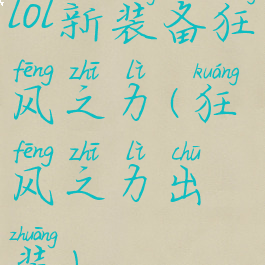 lol新装备狂
fēng zhī lì kuáng
风之力(狂
fēng zhī lì chū
风之力出
zhuāng
装)